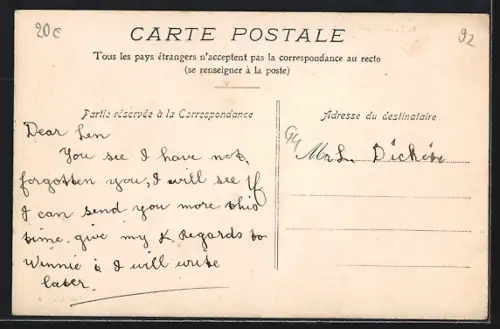 20c
92
CARTE POSTALE
Tous les pays étrangers n'acceptent pas la correspondance au recto
(se renseigner à la poste)
Partie réservée à la Correspondance
Adresse du destinataire
Dear Len
You see I have not
forgotten you, I will see if
I can send you more this
time. give my K Regards to
Winnie & I will write
later.
Mr L.